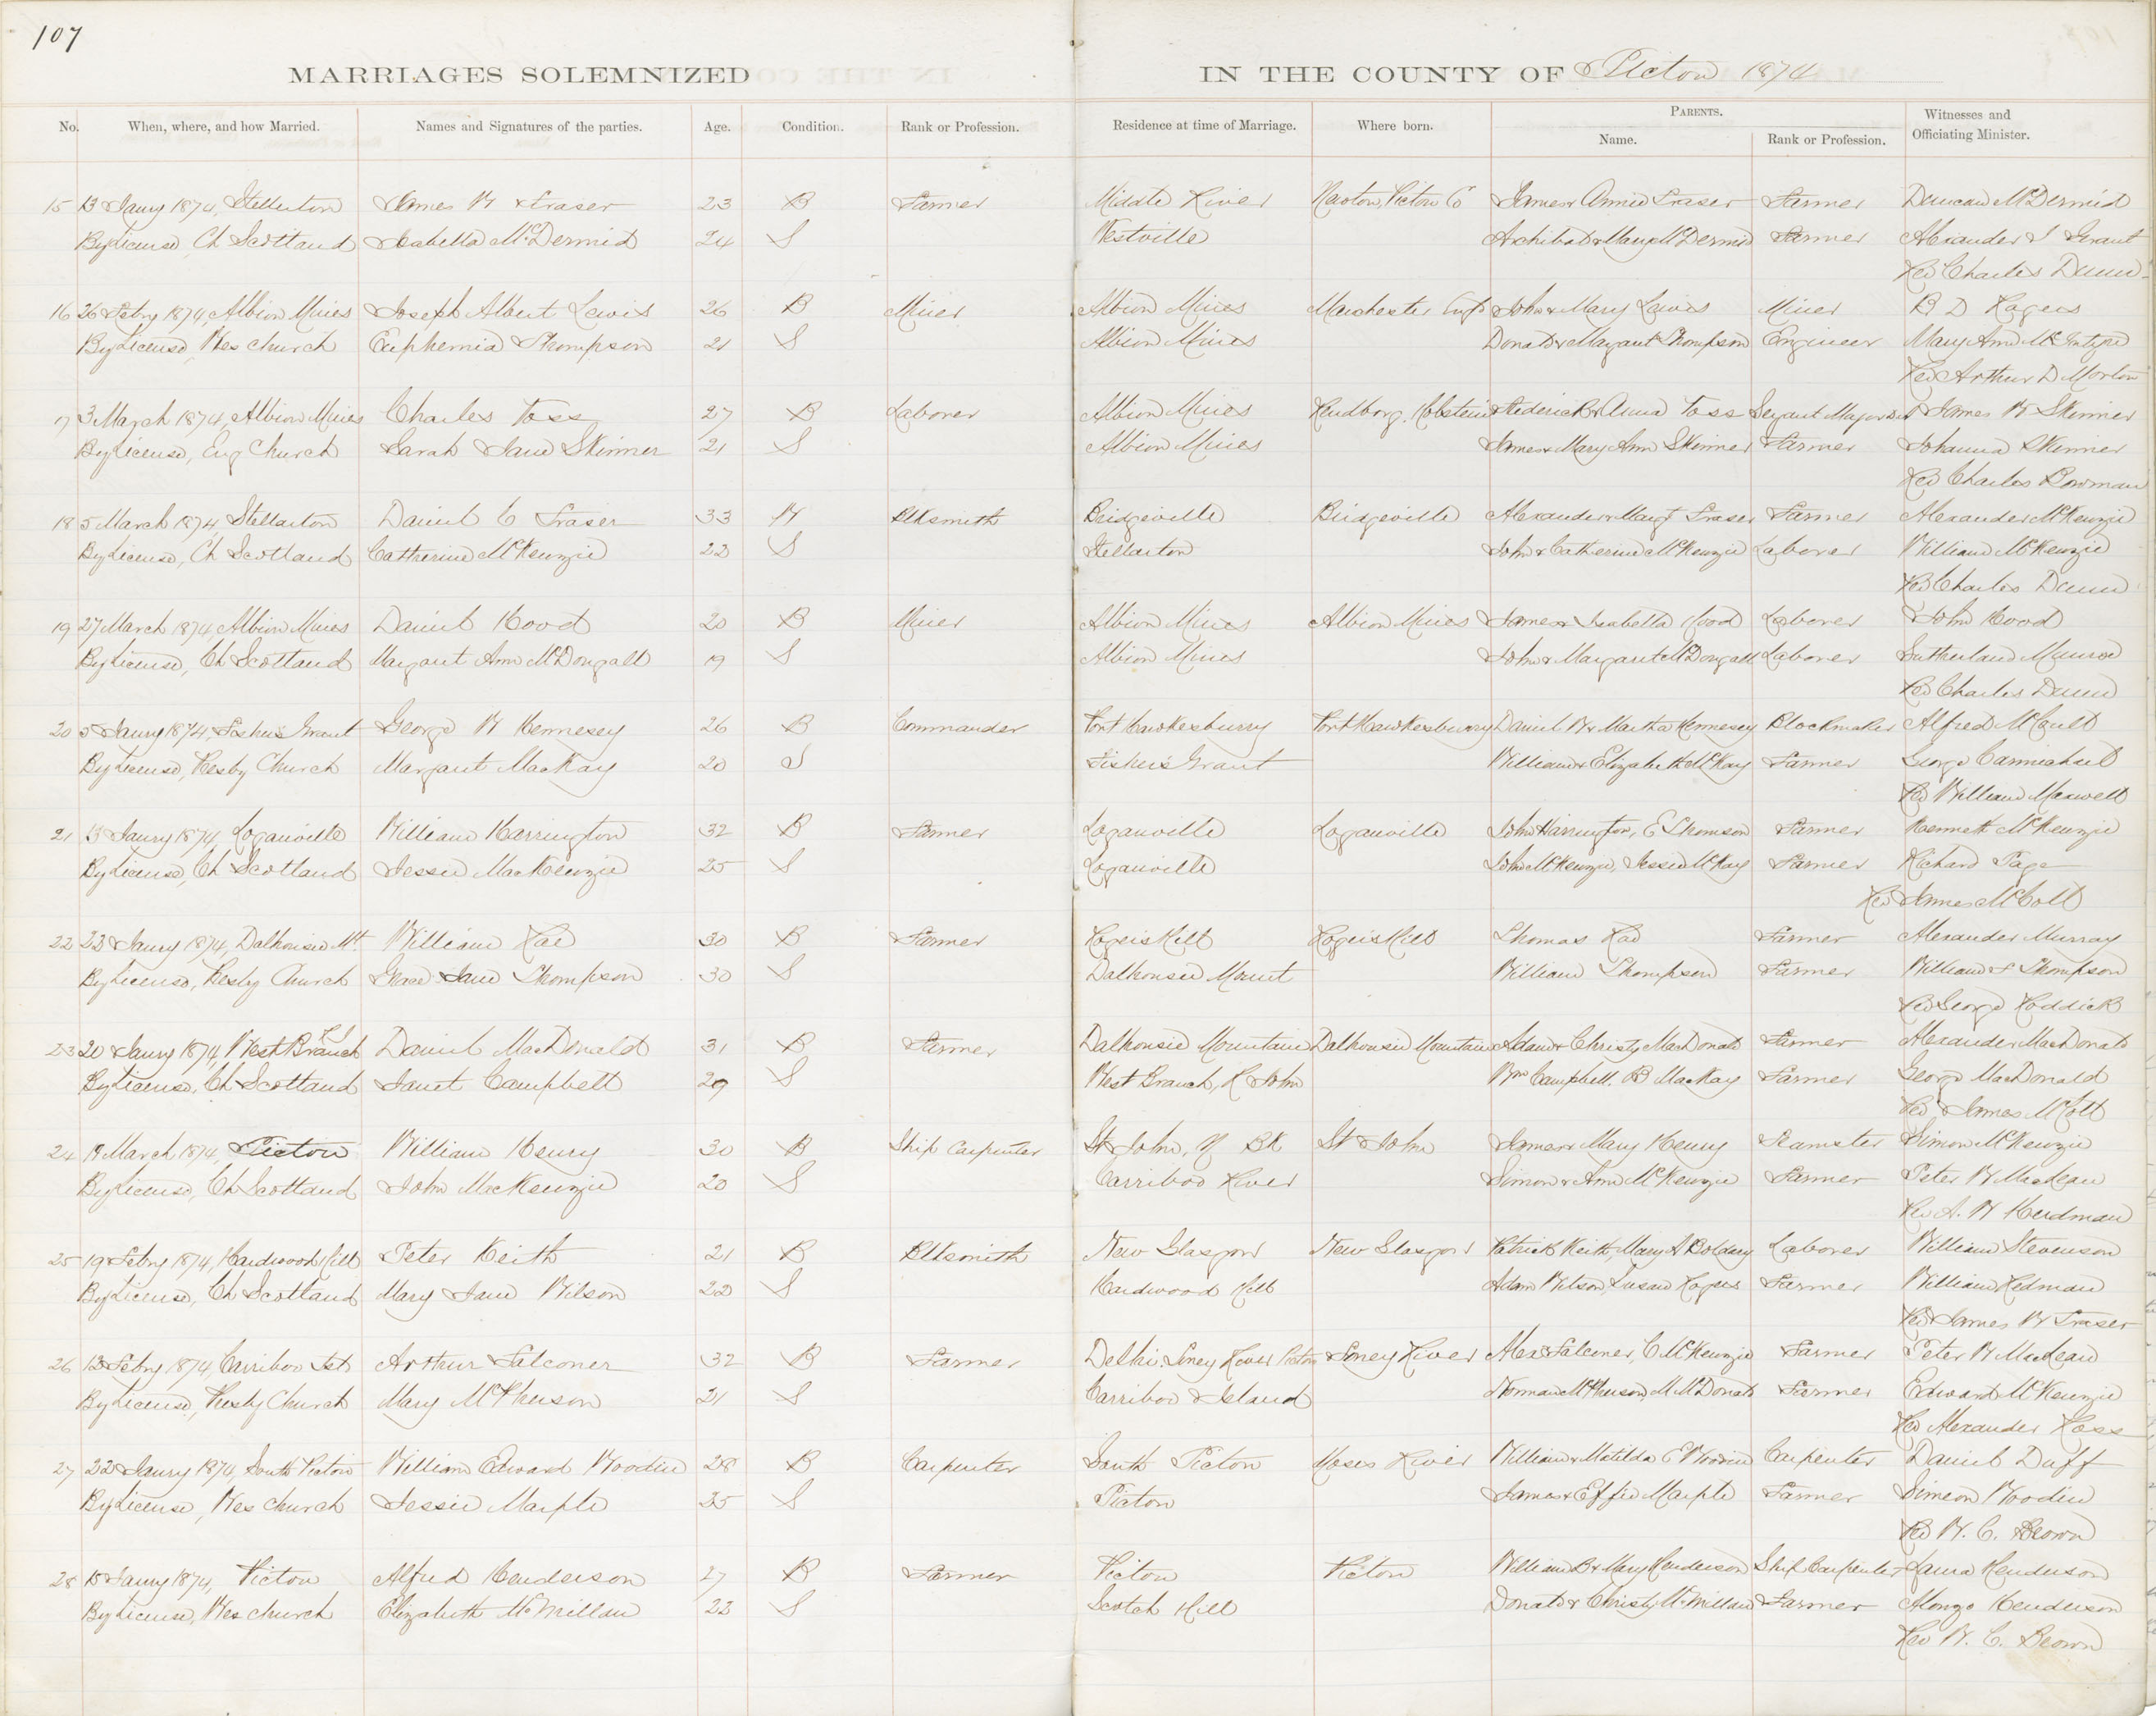 107
MARRIAGES SOLEMNIZED IN THE COUNTY OF Pictou 1874
No. When, where, and how Married. Names and Signatures of the parties. Age. Condition. Rank or Profession. Residence at time of Marriage. Where born. PARENTS. Name. Rank or Profession. Witnesses and Officiating Minister.
15 13 Jany 1874, Stellarton James W Fraser 23 B Farmer Middle River Pictou Co James & Annie Fraser Farmer Duncan McDermid
By License, Ch Scotland Isabella McDermid 24 S Westville Archibald & Mary McDermid Farmer Alexander J Grant
Rev Charles Dunn
16 26 Febry 1874, Albion Mines Joseph Albert Lewis 26 B Miner Albion Mines Manchester Engd John & Mary Lewis Miner B D Rogers
By License, Wes church Euphemia Thompson 21 S Albion Mines Donald & Margaret Thompson Engineer Mary Ann McIntyre
Rev Arthur D Morton
17 3 March 1874, Albion Mines Charles Toss 27 B Laborer Albion Mines Frederick & Anna Toss James W Skinner
By License, Eng Church Sarah Jane Skinner 21 S Albion Mines James & Mary Ann Skinner Farmer Johanna Skinner
Rev Charles Bowman
18 5 March 1874 Stellarton Daniel C Fraser 33 W Blksmith Bridgeville Bridgeville Alexander & Margt Fraser Farmer Alexander McKenzie
By License, Ch Scotland Catherine McKenzie 22 S Stellarton John & Catherine McKenzie Laborer William McKenzie
Rev Charles Dunn
19 27 March 1874, Albion Mines Daniel Hood 20 B Miner Albion Mines Albion Mines James & Isabella Hood Laborer John Hood
By License, Ch Scotland Margaret Ann McDougall 19 S Albion Mines John & Margaret McDougall Laborer Sutherland Munroe
Rev Charles Dunn
20 5 Jany 1874, Fishers Grant George W Hennesey 26 B Commander Port Hawkesburry Port Hawkesburry Daniel W & Martha Hennesey Blockmaker Alfred McCault
By License, Presby Church Margaret MacKay 20 S Fishers Grant William & Elizabeth McKay Farmer George Carmichael
Rev William Maxwell
21 13 Jany 1874, Loganville William Harrington 32 B Farmer Loganville Loganville John Harrington, E Thomson Farmer Kenneth McKenzie
By License, Ch Scotland Jessie MacKenzie 25 S Loganville John McKenzie, Jessie McKay Farmer Richard Page
Rev James McColl
22 22 Jany 1874, Dalhousie Mt. William Rae 30 B Farmer Rogers Hill Rogers Hill Thomas Rae Farmer Alexander Murray
By License, Presby Church Grace Jane Thompson 30 S Dalhousie Mount William Thompson Farmer William F Thompson
Rev George Roddick
23 20 Jany 1874, West Branch R J Daniel MacDonald 31 B Farmer Dalhousie Mountain Dalhousie Mountain Adam & Christy MacDonald Farmer Alexander MacDonald
By License, Ch Scotland Janet Campbell 29 S West Branch, R John Wm Campbell. B MacKay Farmer George MacDonald
Rev James McColl
24 19 March 1874, Pictou William Henry 30 B Ship Carpenter St John, N BK St John James & Mary Henry Teamster Simon McKenzie
By License, Ch Scotland John MacKenzie 20 S Carriboo River Simon & Ann McKenzie Farmer Peter W MacLean
Rev A. W Herdman
25 19 Febry 1874, Hardwood Hill Peter Keith 21 B Blksmith New Glasgow New Glasgow Patrick Keith, Mary A Laborer William Stevenson
By License, Ch Scotland Mary Jane Wilson 22 S Hardwood Hill Adam Wilson, Susan Rogers Farmer William Redman
Rev James W Fraser
26 12 Febry 1874, Carriboo Isld Arthur Falconer 32 B Farmer Delhi, Toney River Pictou Toney River Alex Falconer, C McKenzie Farmer Peter W MacLean
By License, Presby Church Mary McPherson 21 S Carriboo Island Norman McPherson, M McDonald Farmer Edward McKenzie
Rev Alexander Ross
27 22 Jany 1874, South Pictou William Edward Woodin 28 B Carpenter South Pictou Moses River William & Matilda E Woodin Carpenter Daniel Duff
By License, Wes church Jessie Marple 25 S Pictou James & Effie Marple Farmer Simeon Woodin
Rev W. C. Brown
28 15 Jany 1874, Pictou Alfred Henderson 27 B Farmer Pictou Pictou William B & Mary Henderson Ship Carpenter Laura Henderson
By License, Wes church Elizabeth McMillan 22 S Scotch Hill Donald & Christy McMillan Farmer Alonzo Henderson
Rev W. C. Brown